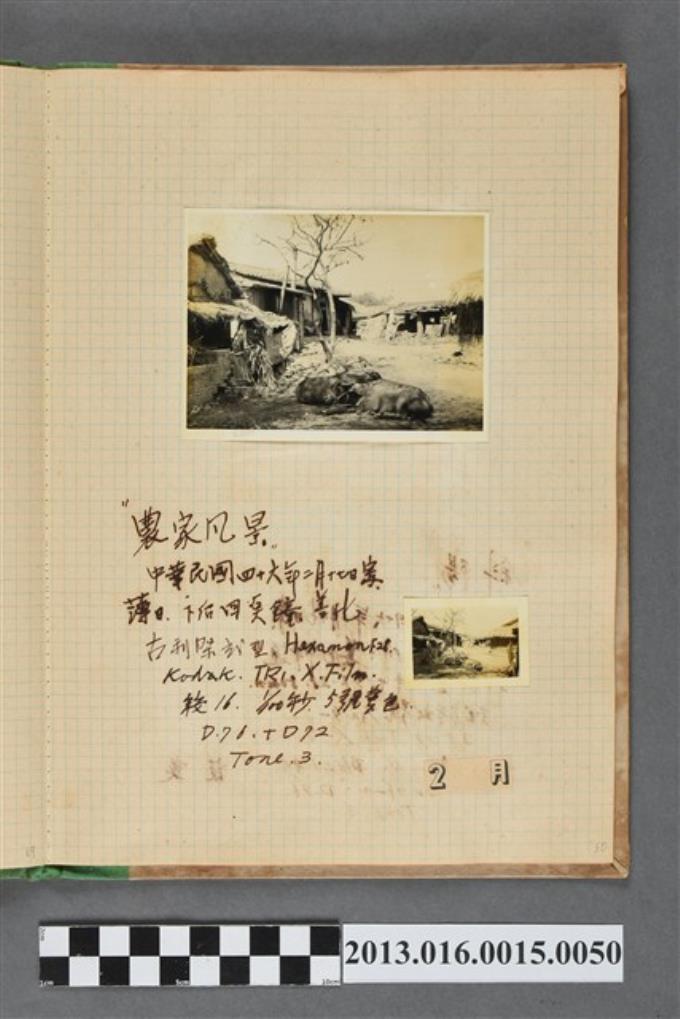 "農家風景"
中華民國四十六年二月十七日
薄日、下后四点 善化
古利 型、Hexanon
Kodak. TRi. X. Film.
絞16. 1/100秒 5號黄色.
D.76. + D92
Tone. 3.
2 月
50
2013.016.0015.0050